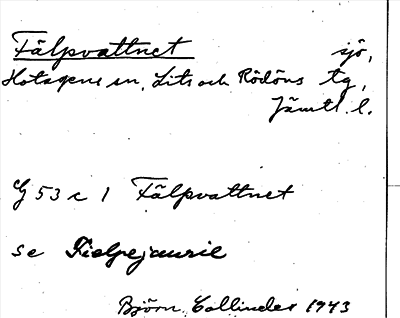 Fälpvattnet sjö,
Hotagens sn, Lits och Rödöns tg,
Jämtl. l.
G 53 c 1 Fälpvattnet
se Fielpejaurie
Björn Collinder 1943